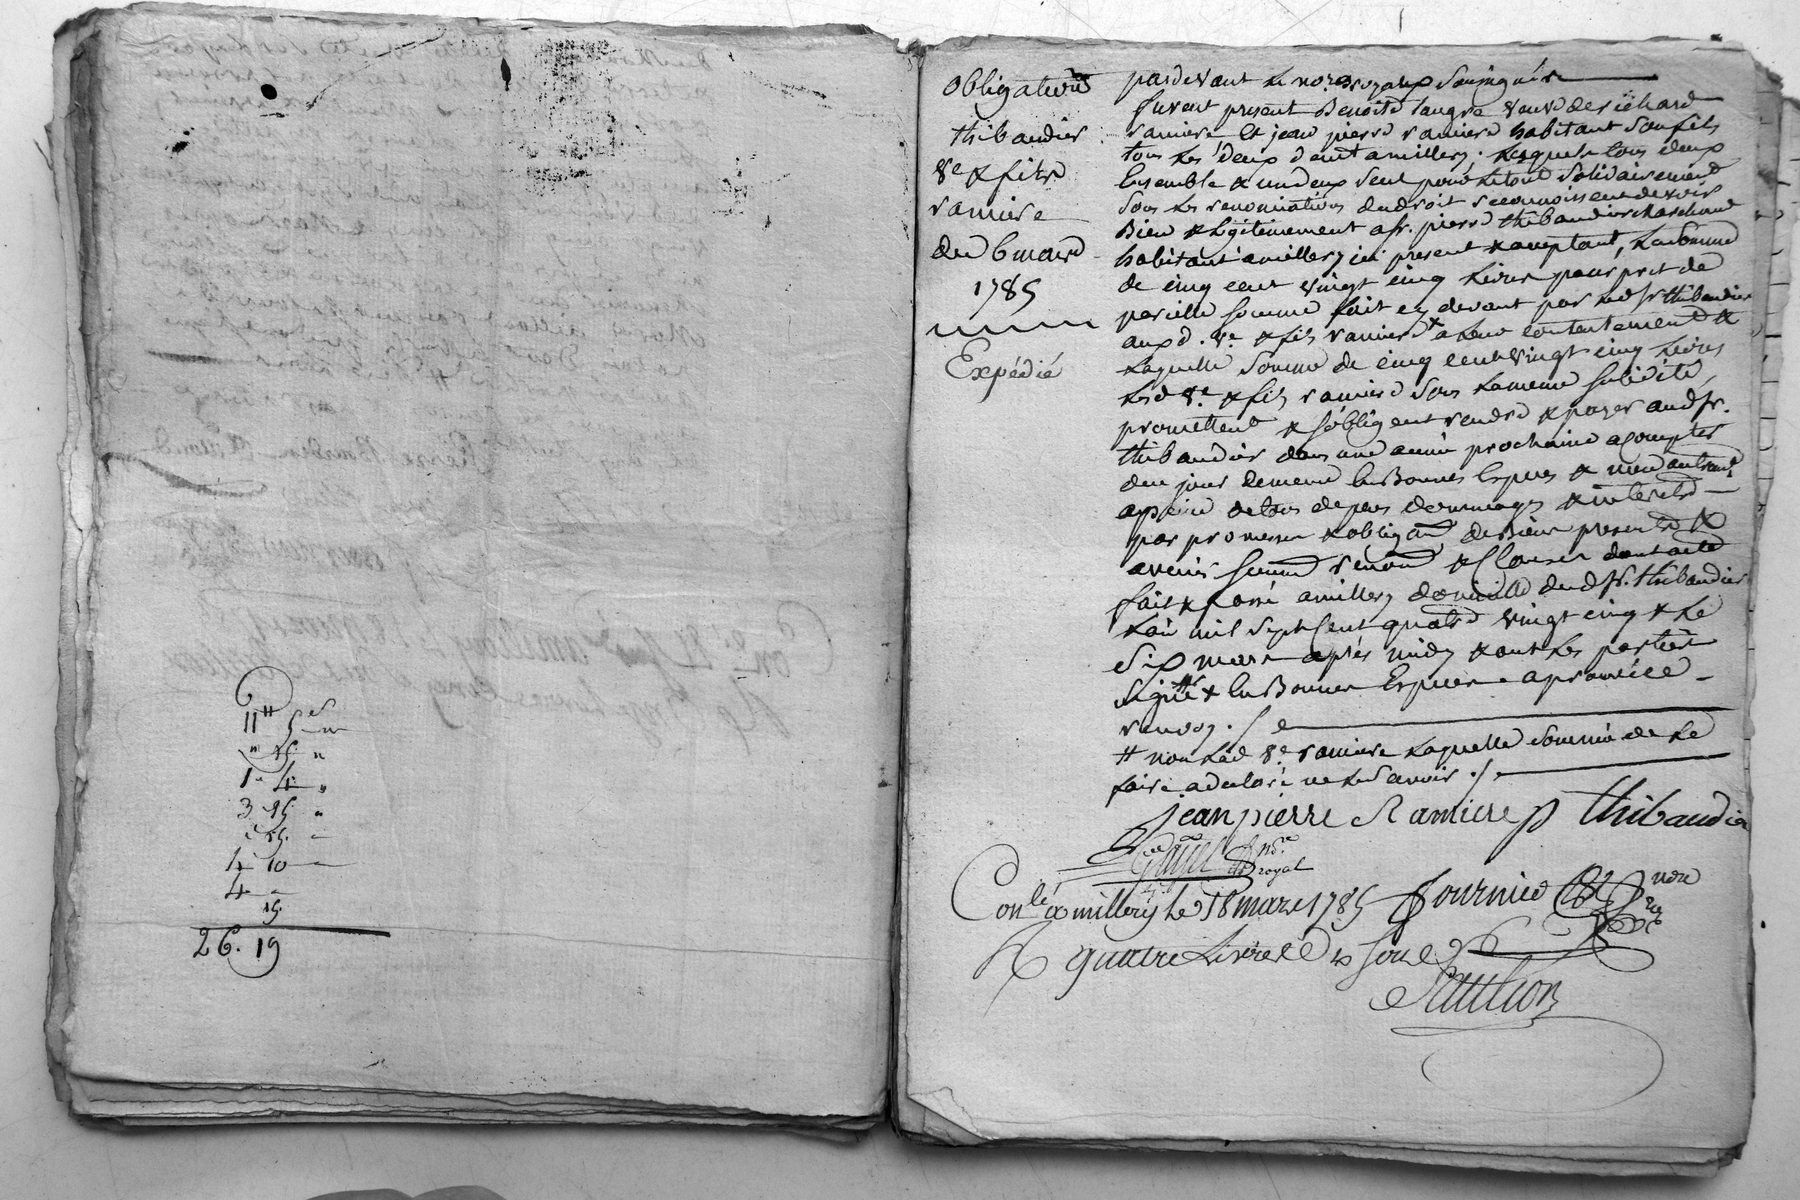 11 tt 5 s
" 15 "
1 " 4 "
3 " 15 "
" 15 "
4 " 10
4 "
15
26 . 19
obligation
thibaudier
Ve & fils
ramiere
du 6 mars
1785
Expédié
pardevant les nores royaux soussignés
furent present Benoite Langre veuve de richard
ramiere et jean pierre ramiere habitant son fils
tous les deux dud millery. Lesquels tous deux
Ensemble & un deux seul pour le tout solidairement
sous les renonciations de droit reconnoissent devoir
Bien & légitimement a sr. pierre thibaudier marchand
habitant a millery ici present & acceptant, la somme
de cinq cent vingt cinq livres pour pret de
pareille somme fait cy devant par led sr thibaudier
auxd. Ve. & fils ramiere a leur contentement &
Laquelle somme de cinq cent vingt cinq livres
lesd Ve. & fils ramiere sous la meme solidité,
promettent & s'obligent rendre & payer aud sr.
thibaudier dans une année prochaine a compter
du jour demeure en Bonnes Especes &
a peine de tous depens dommages & interets
par promesse & obligaon de Biens presents &
avenir soumd renond & Clauses dont acte
fait & passé a millery domicile dud sr. thibaudier
L'an mil sept cent quatre vingt cinq & le
six mars après midy & ont les parties
signé tt & en Bonnes Especes - aprouvé le
renvoy ./.
tt non lad Ve. ramiere laquelle sommée de le
faire a declaré ne le savoir ./.
jean pierre Ramiere p thibaudier
nre
royal
Conlé a millery le 18 mars 1785 fournier nore
R quatre Livres dix sous